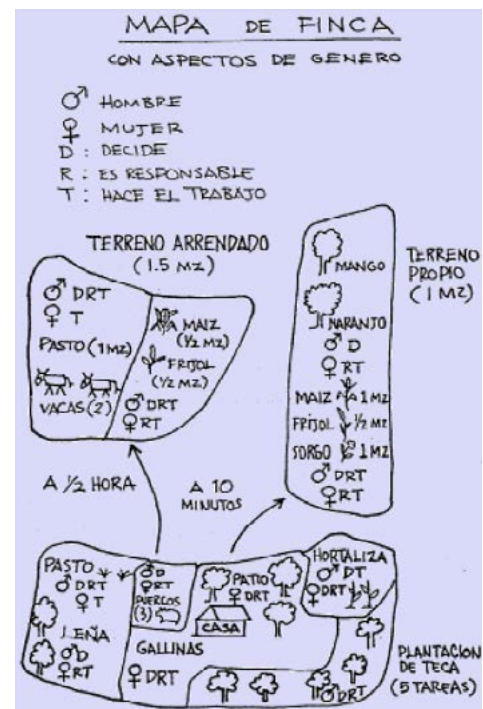 MAPA DE FINCA
CON ASPECTOS DE GENERO
♂ HOMBRE
♀ MUJER
D : DECIDE
R : ES RESPONSABLE
T : HACE EL TRABAJO
TERRENO ARRENDADO
(1.5 MZ)
♂ DRT
♀ T
PASTO (1 MZ)
VACAS (2)
MAIZ
(½ MZ)
FRIJOL
(½ MZ)
♂ DRT
♀ RT
TERRENO
PROPIO
(1 MZ)
MANGO
NARANJO
♂ D
♀ RT
MAIZ 1 MZ
FRIJOL ½ MZ
SORGO 1 MZ
♂ DRT
♀ RT
A ½ HORA
A 10
MINUTOS
PASTO
♂ DRT
♀ T
LEÑA
♂ D
♀ RT
♂ D
♀ RT
PUERCOS
(3)
GALLINAS
♀ DRT
PATIO
♀ DRT
CASA
HORTALIZA
♂ DT
♀ DRT
♂ DRT
PLANTACION
DE TECA
(5 TAREAS)